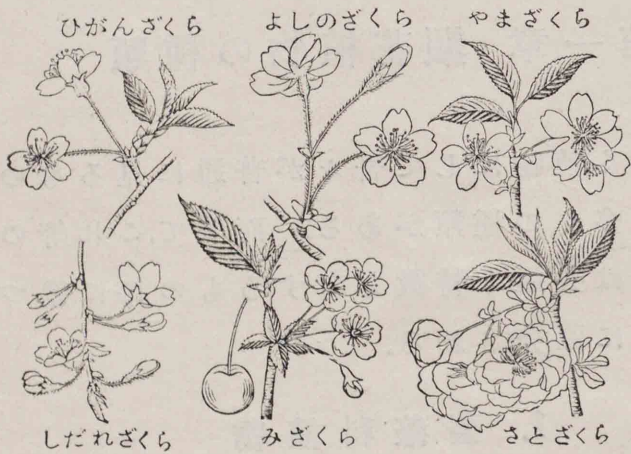 ひがんざくら
よしのざくら
やまざくら
しだれざくら
みざくら
さとざくら